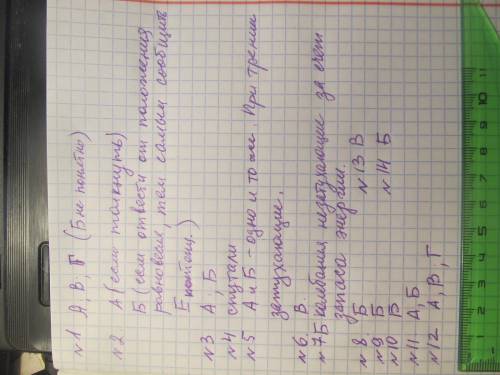 №1 А, В, Г (Б не понятно)
№2 А (если толкнуть)
Б (если отвести от положения
равновесия, тем самым сообщить
Е потенц.)
№3 А, Б
№4 спутали
№5 А и Б - одно и то же. При трении
затухающие.
№6. В.
№7 Б колебания незатухающие за счёт
запаса энергии.
№8. Б №13 В
№9 Б №14 Б
№10 В
№11 А, Б
№12 А, В, Г
1 2 3 4 5 6 7 8 9 10 11